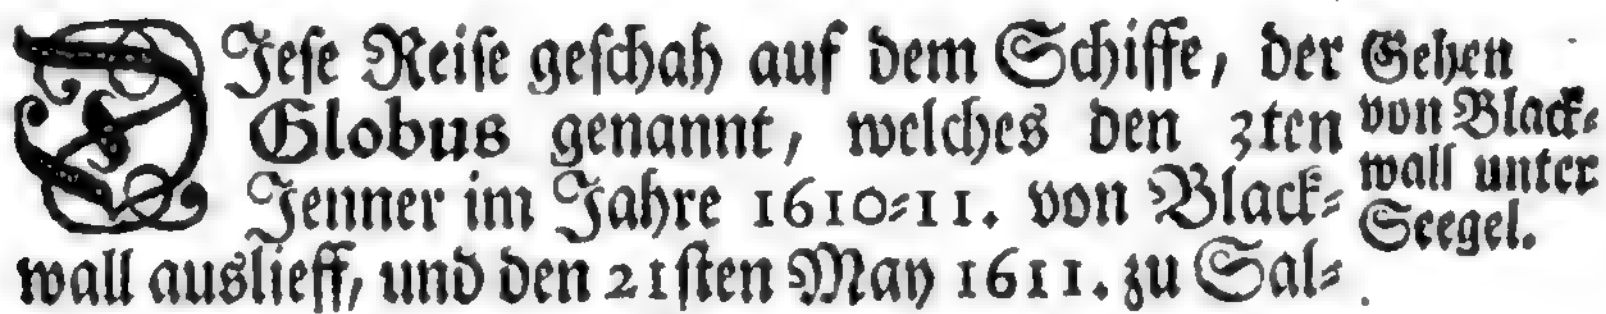 DJeſe Reiſe geſchah auf dem Schiffe, der
Globus genannt, welches den 3ten
Jenner im Jahre 1610⸗11. von Black⸗
wall auslieff, und den 21ſten May 1611. zu Sal⸗
Gehen
von Black⸗
wall unter
Seegel.